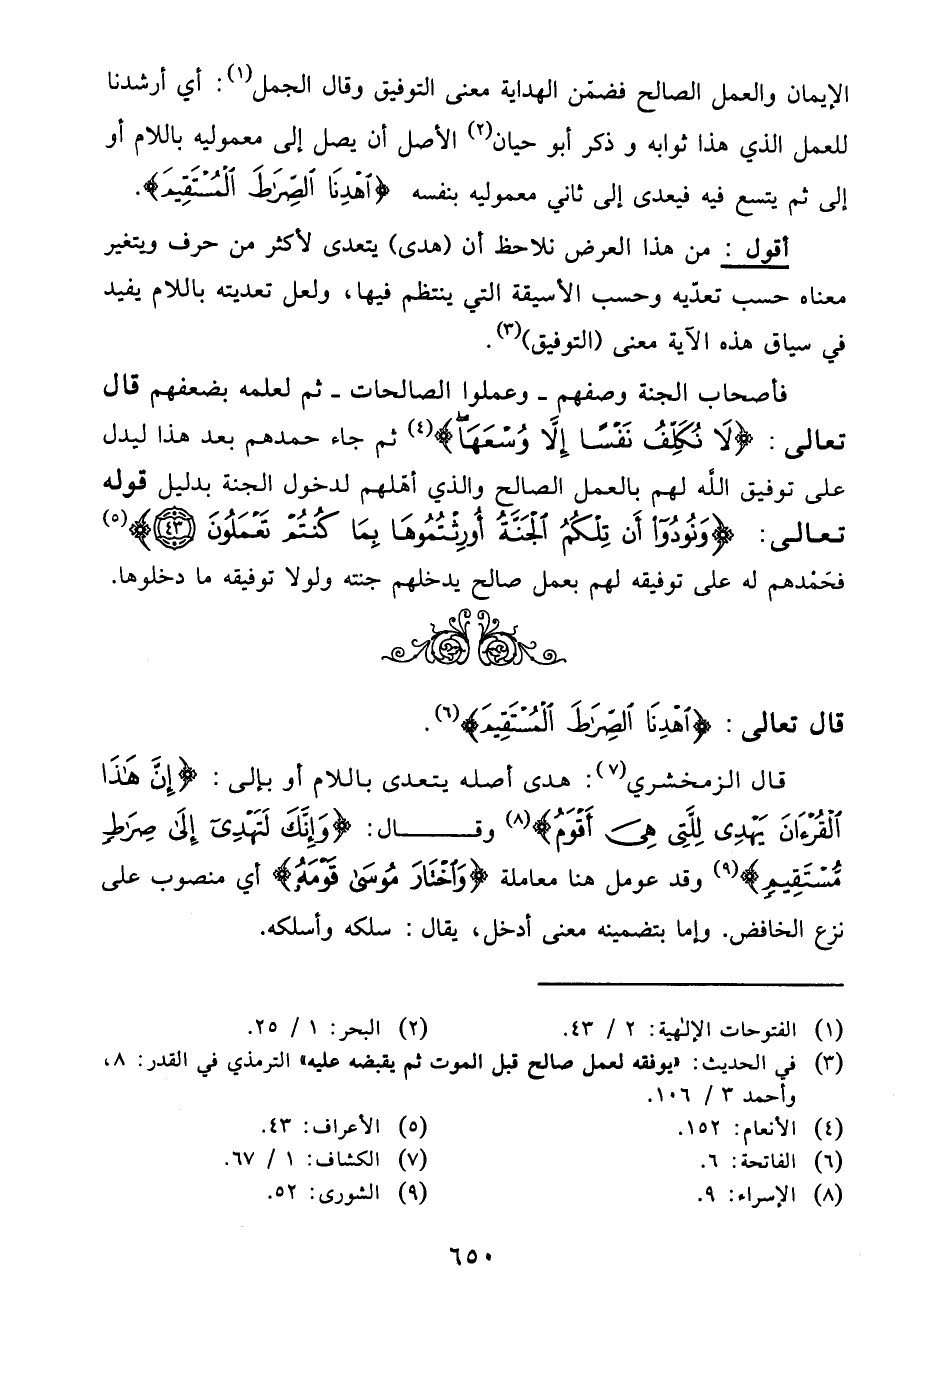 الإيمان والعمل الصالح فضمّن الهداية معنى التوفيق وقال الجمل(١): أي أرشدنا
للعمل الذي هذا ثوابه و ذكر أبو حيان(٢) الأصل أن يصل إلى معموليه باللام أو
إلى ثم يتسع فيه فيعدى إلى ثاني معموليه بنفسه ﴿ٱهْدِنَا ٱلصِّرَٰطَ ٱلْمُسْتَقِيمَ﴾.
أقول : من هذا العرض نلاحظ أن (هدى) يتعدى لأكثر من حرف ويتغير
معناه حسب تعدّيه وحسب الأسيقة التي ينتظم فيها، ولعل تعديته باللام يفيد
في سياق هذه الآية معنى (التوفيق)(٣).
فأصحاب الجنة وصفهم ـ وعملوا الصالحات ـ ثم لعلمه بضعفهم قال
تعالى : ﴿لَا نُكَلِّفُ نَفْسًا إِلَّا وُسْعَهَاۖ﴾(٤) ثم جاء حمدهم بعد هذا ليدل
على توفيق اللّه لهم بالعمل الصالح والذي أهّلهم لدخول الجنة بدليل قوله
تعالى: ﴿وَنُودُوٓا۟ أَن تِلْكُمُ ٱلْجَنَّةُ أُورِثْتُمُوهَا بِمَا كُنتُمْ تَعْمَلُونَ ۝٤٣﴾(٥)
فحَمْدهم له على توفيقه لهم بعمل صالح يدخلهم جنته ولولا توفيقه ما دخلوها.
قال تعالى : ﴿ٱهْدِنَا ٱلصِّرَٰطَ ٱلْمُسْتَقِيمَ﴾(٦).
قال الزمخشري(٧): هدى أصله يتعدى باللام أو بإلى : ﴿إِنَّ هَٰذَا
ٱلْقُرْءَانَ يَهْدِى لِلَّتِى هِىَ أَقْوَمُ﴾(٨) وقـــال: ﴿وَإِنَّكَ لَتَهْدِىٓ إِلَىٰ صِرَٰطٍ
مُّسْتَقِيمٍ﴾(٩) وقد عومل هنا معاملة ﴿وَٱخْتَارَ مُوسَىٰ قَوْمَهُۥ﴾ أي منصوب على
نزع الخافض. وإما بتضمينه معنى أدخل، يقال : سلكه وأسلكه.
(١) الفتوحات الإلهية: ٢ / ٤٣. (٢) البحر: ١ / ٢٥.
(٣) في الحديث: «يوفقه لعمل صالح قبل الموت ثم يقبضه عليه» الترمذي في القدر: ٨،
وأحمد ٣ / ١٠٦.
(٤) الأنعام: ١٥٢. (٥) الأعراف: ٤٣.
(٦) الفاتحة: ٦. (٧) الكشاف: ١ / ٦٧.
(٨) الإسراء: ٩. (٩) الشورى: ٥٢.
٦٥٠